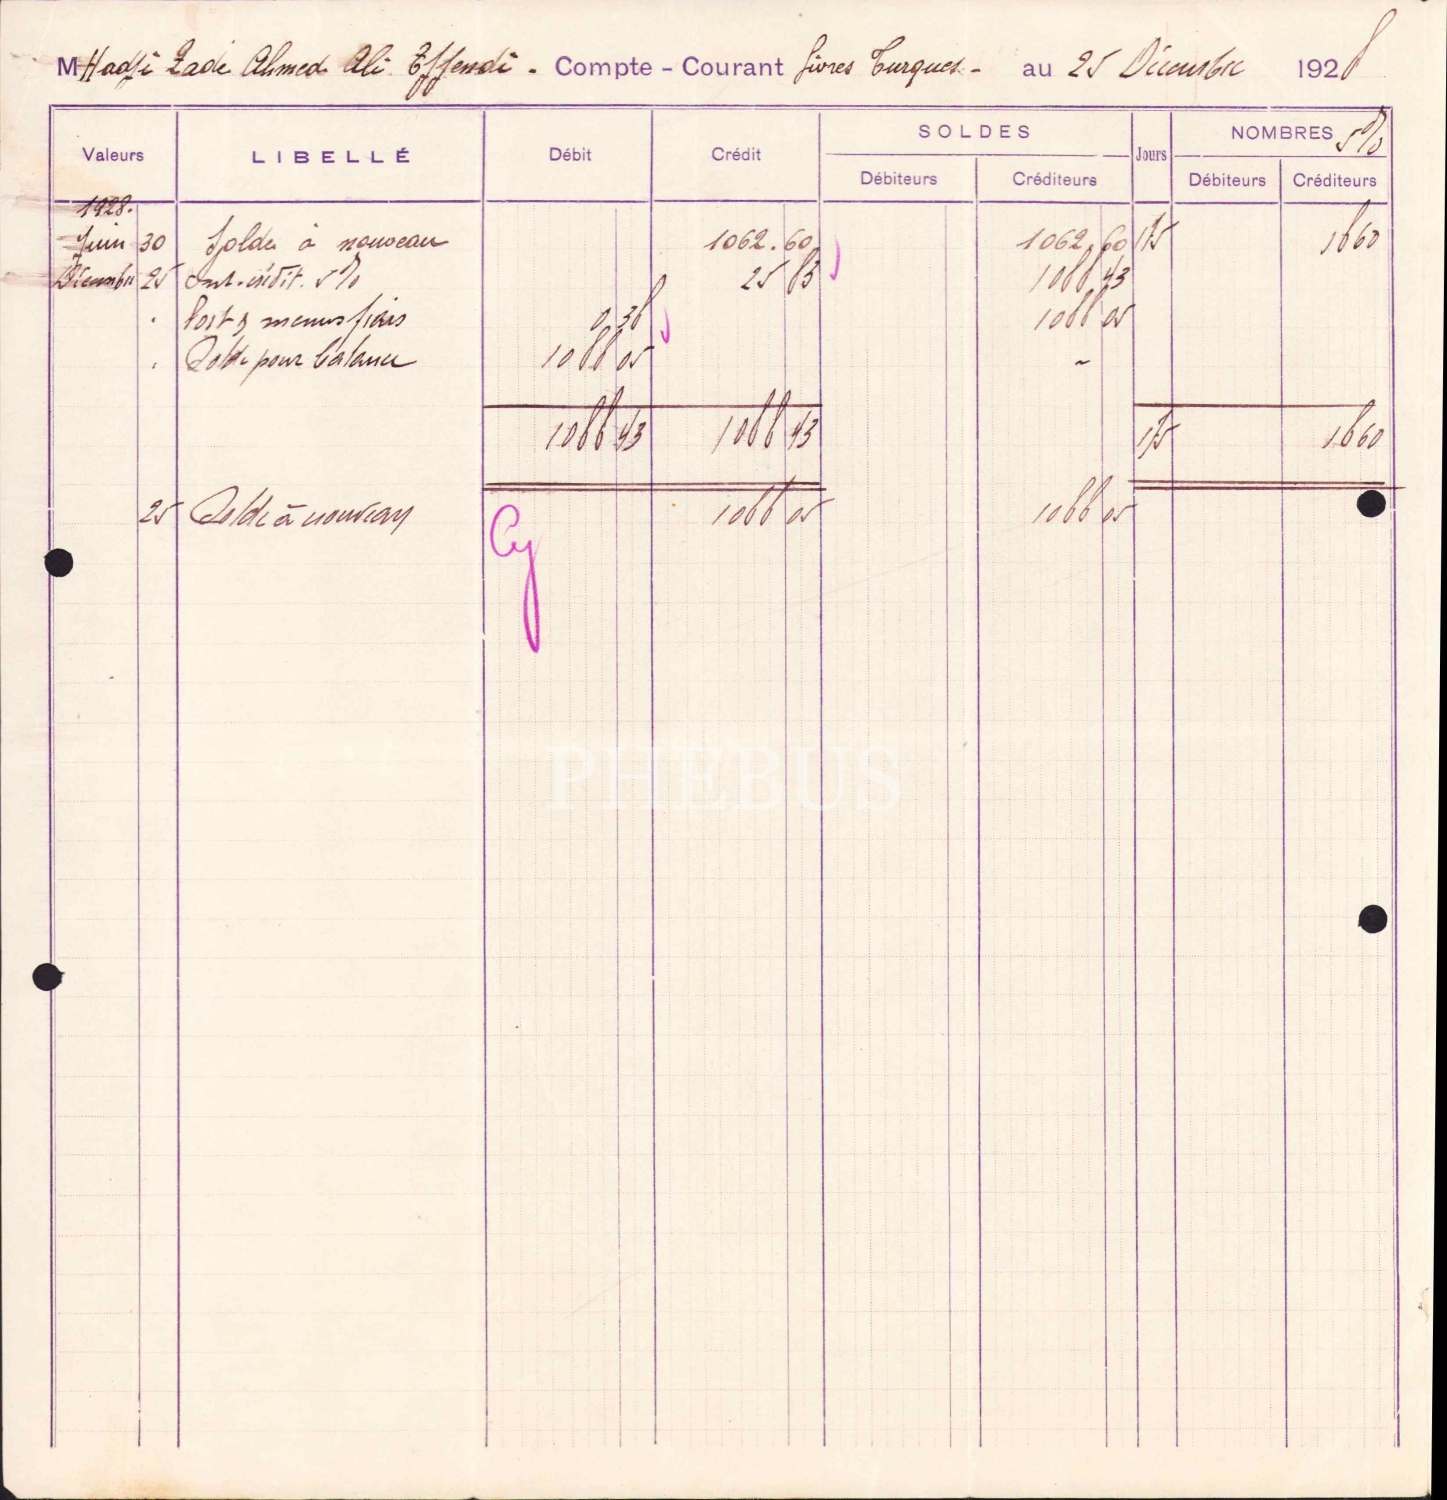 M Hadji Zade Ahmed Ali Effendi. Compte - Courant Livres Turques. - au 25 Décembre 1928
Valeurs LIBELLÉ Débit Crédit SOLDES Jours NOMBRES 5%
Débiteurs Créditeurs Débiteurs Créditeurs
1928.
Juin 30 Solde à nouveau 1062.60 1062.60 175 1860
Décembre 25 Int. crédit. 5% 25 83 1088 43
. Port & menus frais 0,38 1088 05
. Solde pour balance 1088 05 ~
1088 43 1088 43 175 1860
25 Solde à nouveau 1088 05 1088 05
PHEBUS